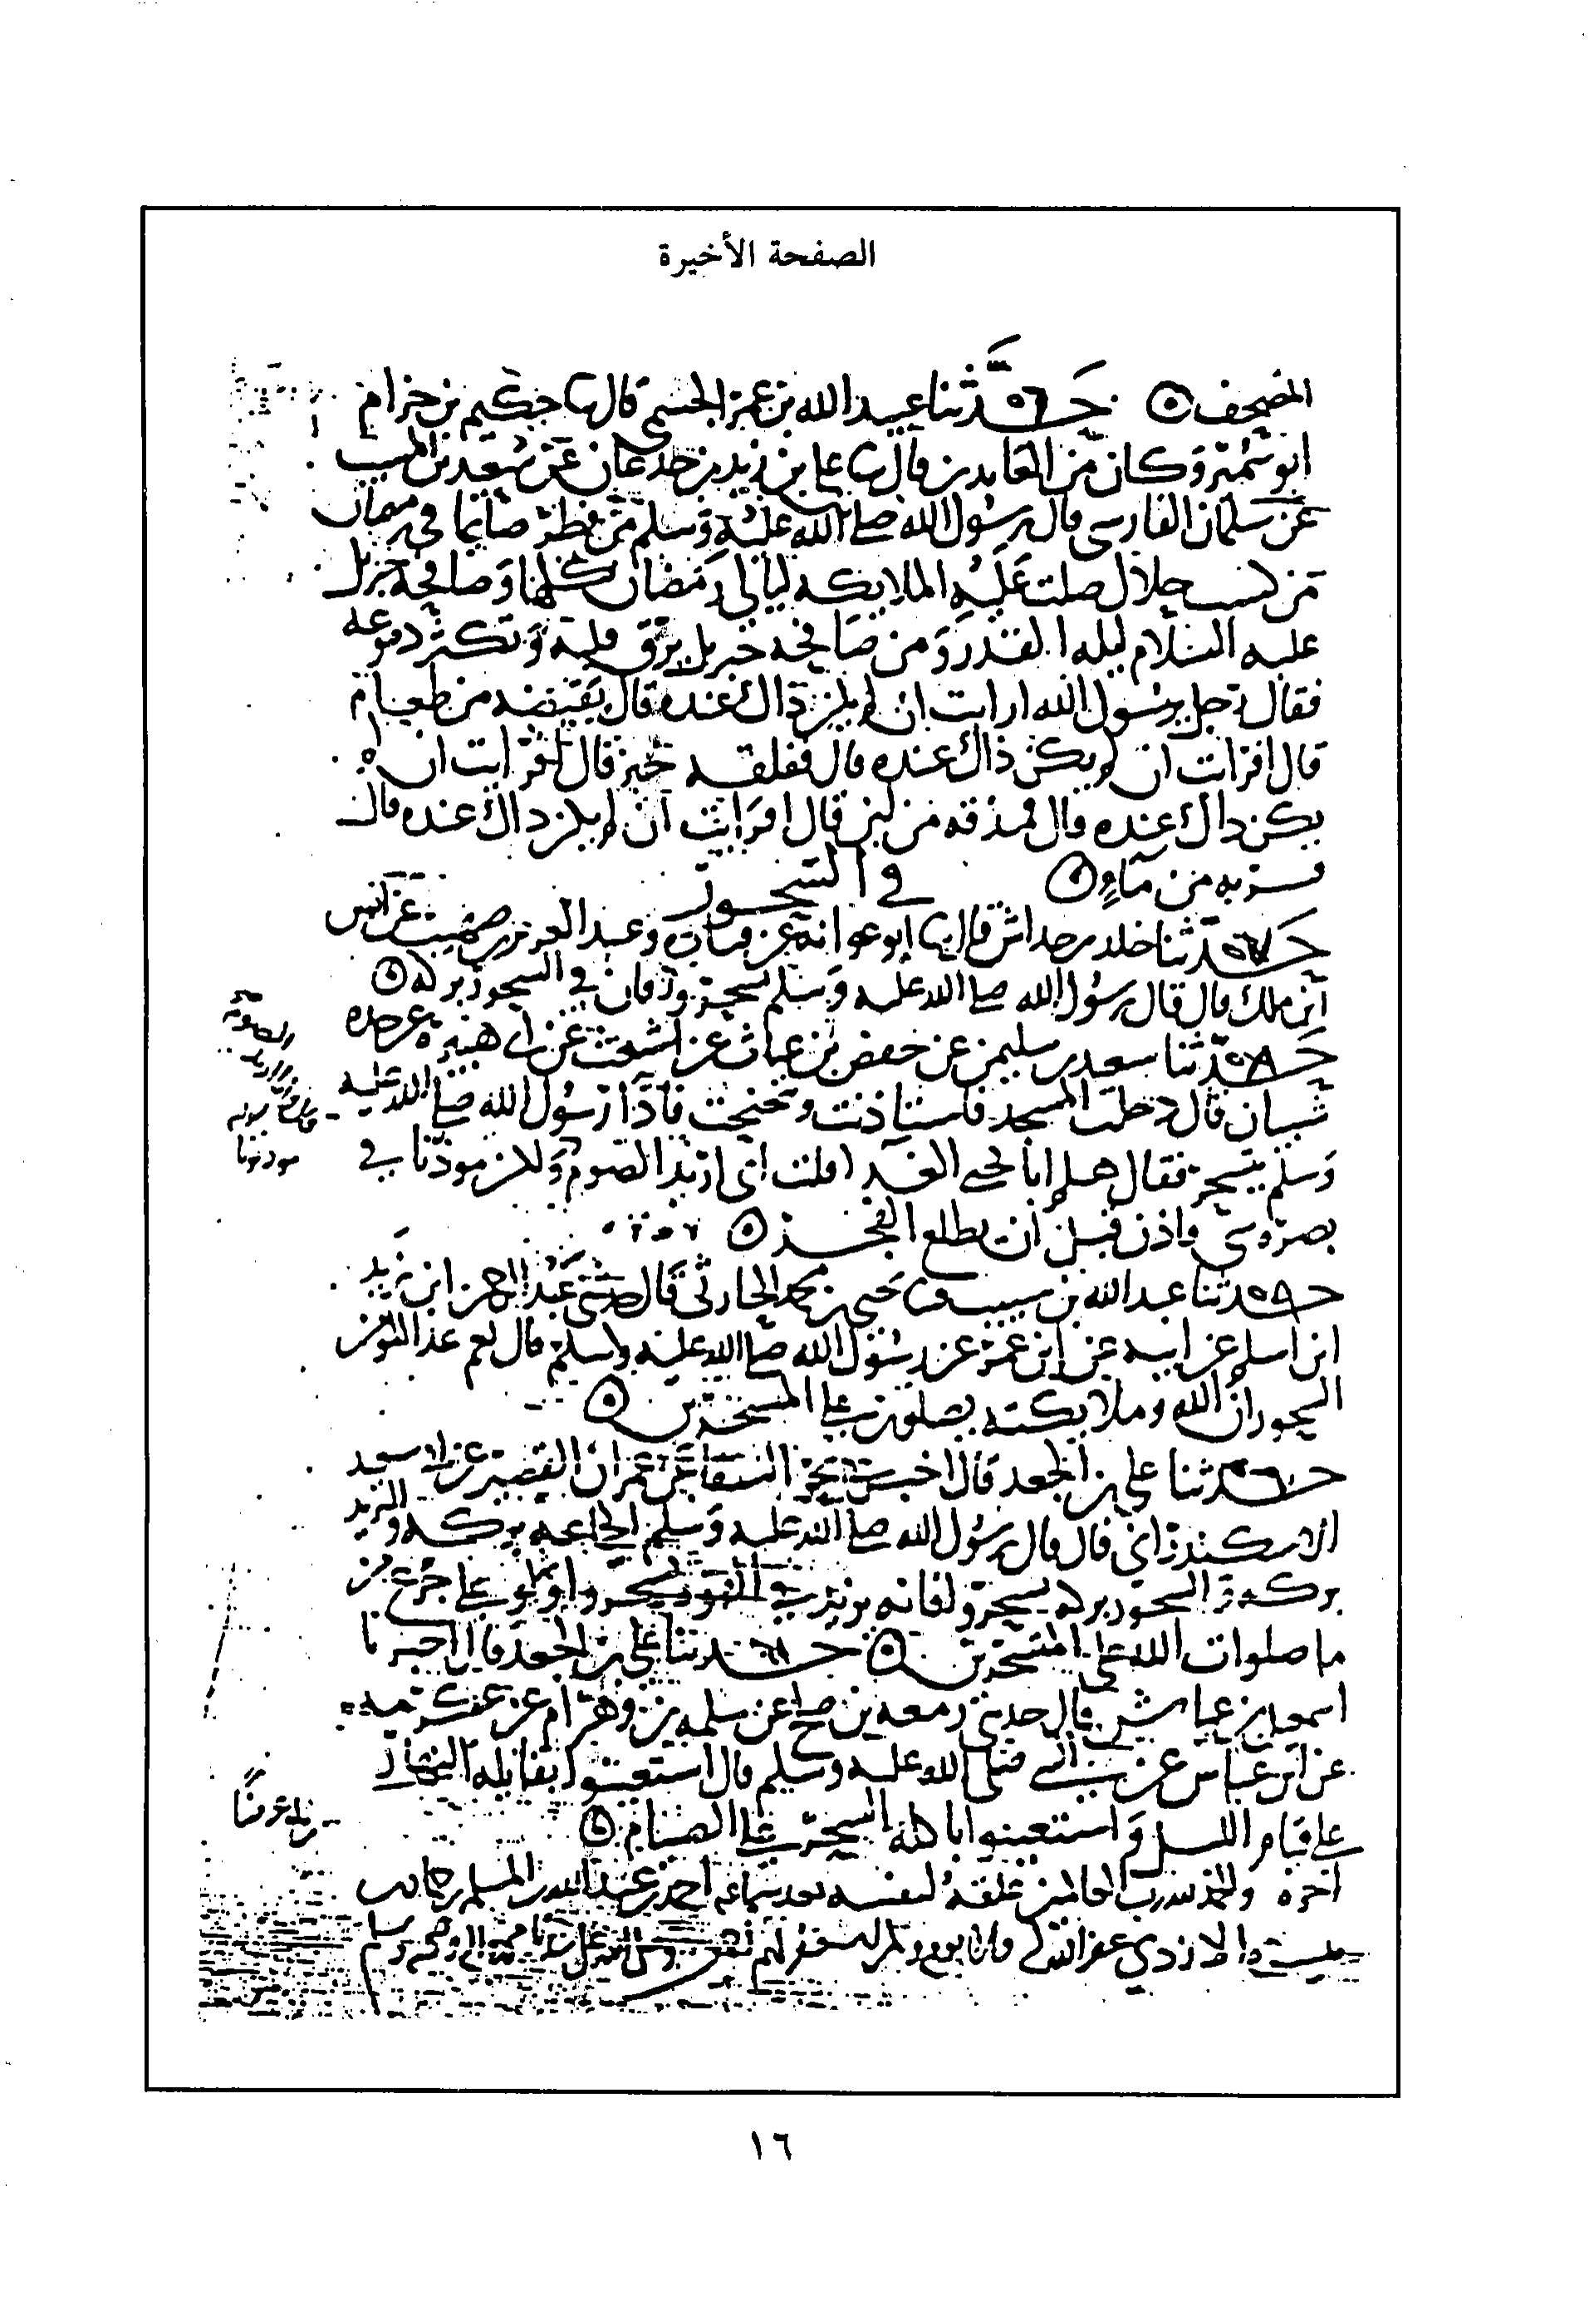 الصفحة الأخيرة
المصحف ٥ حدثنا عبيد الله بن عمر الجشمي قال نا حكيم بن خزام
ابو سمير وكان من العابدين قال نا علي بن زيد بن جدعان عن سعيد بن المسيب
عن سلمان الفارسي قال رسول الله صلى الله عليه وسلم من فطر صايما في رمضان
من كسب حلال صلت عليه الملايكه ليالي رمضان كلها وصافحه جبريل
عليه السلام ليله القدر ومن صافحه جبريل يرق قلبه وتكثر دموعه
فقال رجل يرسول الله ارايت ان لم يكن ذاك عنده قال فقبضه من طعام
قال افرات ان لم يكن ذاك عنده قال ففلقه خبز قال افرايت ان لم
يكن ذاك عنده قال فمذقه من لبن قال افرايت ان لم يكن ذاك عنده قال
فشربه من مآء ٥
في السحور
حدثنا خلد بن خداش قال نا ابو عوانه عن قتاده وعبد العزيز بن صهيب عن انس
ابن ملك قال قال رسول الله صلى الله عليه وسلم تسحروا فان في السحور بركه ٥
حدثنا سعيد بن سليمن عن حفص بن غياث عن اشعث عن ابي هبيرة عن جده
شيبان قال دخلت المسجد فاستاذنت وتنحنحت فاذا رسول الله صلى الله عليه
وسلم يتسحر فقال هلم ابا يحيى الغدا قلت اني اريد الصوم ولكن موذننا في
بصره سي واذن قبل ان يطلع الفجر ٥
حدثنا عبد الله بن شبيب نا يحيى بن محمد الجاري قال حدثني عبد الرحمن ابن زيد
ابن اسلم عن ابيه عن ابن عمر عن رسول الله صلى الله عليه وسلم قال نعم غذا المومن
السحور ان الله وملايكته يصلون على المتسحرين ٥
حدثنا علي بن الجعد قال اخبرني بحر السقا عن عمران القصير عن ابي سعيد
الاسكندراني قال قال رسول الله صلى الله عليه وسلم الجماعه بركه والثريد
بركه والسحور بركه تسحروا فانه يزيد في القوه تسحروا ولو على جرع من
ما صلوات الله على المتسحرين ٥ حدثنا علي بن الجعد قال اخبرنا
اسمعيل بن عياش قال حدثني زمعه بن صلح عن سلمه بن وهرام عن عكرمه
عن ابن عباس عن النبي صلى الله عليه وسلم قال استعينوا بقايله النهار
على قيام الليل واستعينوا باكله السحر على الصيام ٥
اخره والحمد لله رب العالمين علقه لنفسه بعد سماعه احمد بن عبد الله بن المسلم بن
الازدي عفر الله له ولوالديه ولمن استغفر لهم
١٦